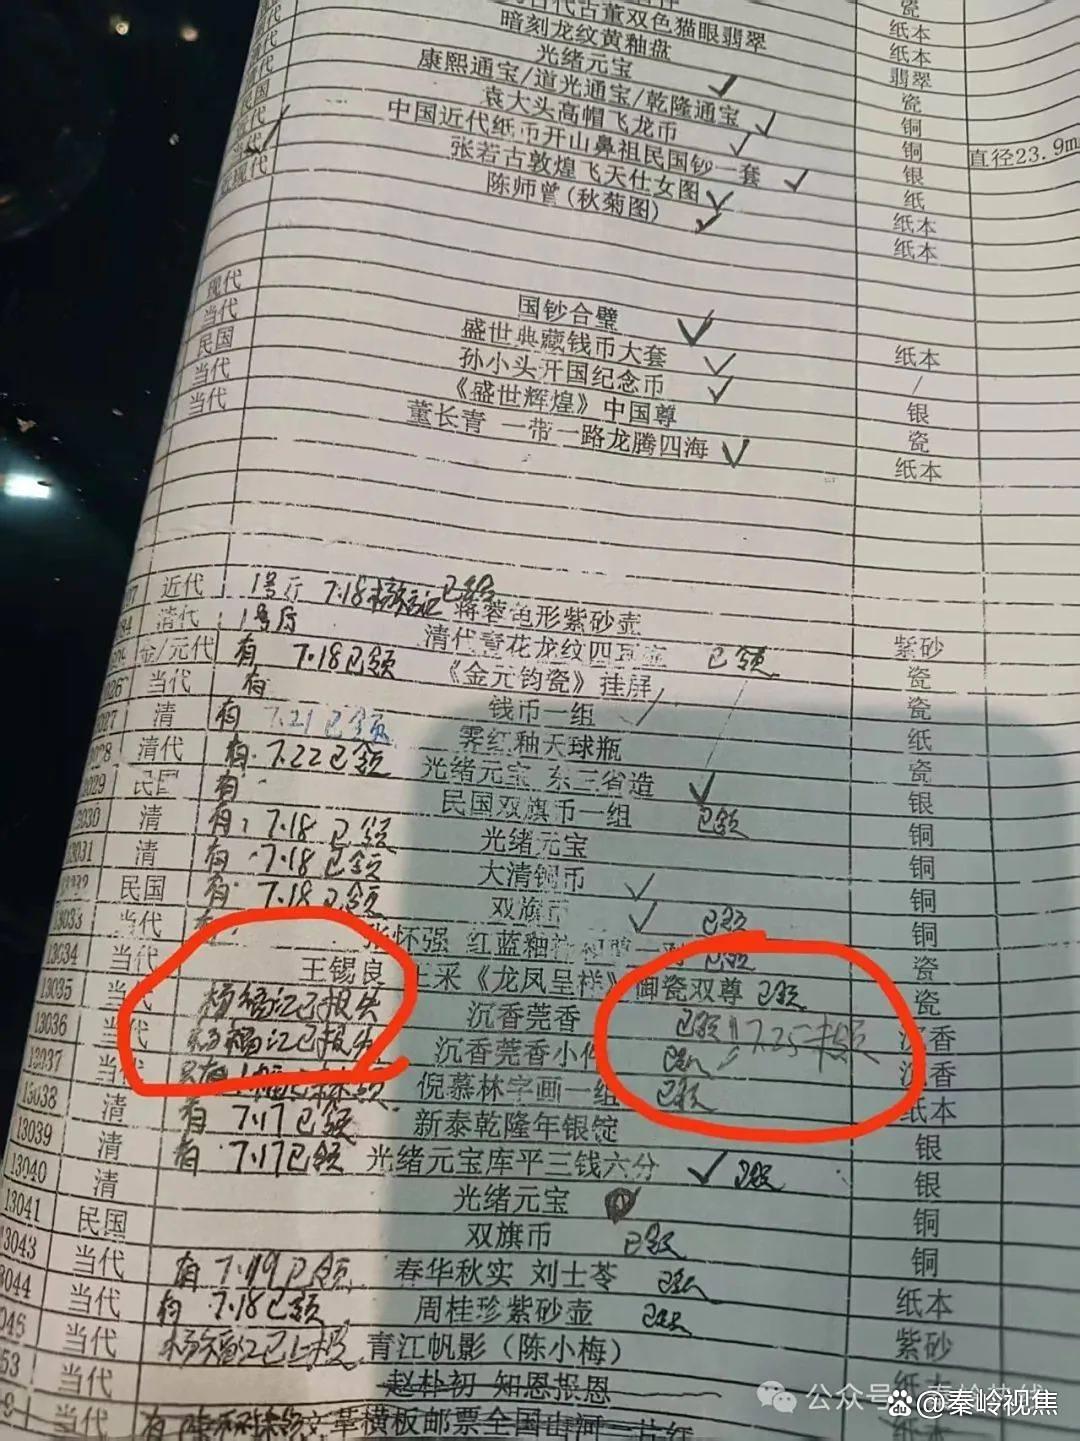 古代古董双色猫眼翡翠 瓷
暗刻龙纹黄釉盘 纸本
光绪元宝 纸本
康熙通宝/道光通宝/乾隆通宝 翡翠
袁大头高帽飞龙币 瓷
中国近代纸币开山鼻祖民国钞一套 铜
张若古敦煌飞天仕女图 铜 直径23.9m
陈师曾(秋菊图) 银
纸
纸本
纸本
现代
当代 国钞合璧
民国 盛世典藏钱币大套 纸本
当代 孙小头开国纪念币 /
当代 《盛世辉煌》中国尊 银
董长青 一带一路龙腾四海 瓷
纸本
近代 1号厅 7.18 已领 蒋蓉龟形紫砂壶
清代 1号厅 清代青花龙纹四 已领 紫砂
金/元代 有 7.18已领 《金元钧瓷》挂屏 瓷
026 当代 有 钱币一组 瓷
027 清 有 7.21已领 霁红釉天球瓶 纸
028 清代 有 7.22已领 光绪元宝 东三省造 瓷
3029 民国 有 民国双旗币一组 已领 银
3030 清 有 7.18已领 光绪元宝 铜
13031 清 有 7.18已领 大清铜币 铜
民国 有 7.18已领 双旗币 已领 铜
13033 当代 有 张怀强 红蓝釉 已领 铜
13034 当代 王锡良 《龙凤呈祥》御瓷双尊 已领 瓷
13035 当代 杨福江已报失 沉香莞香 已领 7.25未领 瓷
13036 当代 杨福江已报失 沉香莞香小件 已领 沉香
13037 当代 倪慕林字画一组 已领 沉香
13038 清 有 7.17已领 新泰乾隆年银锭 纸本
13039 清 有 7.17已领 光绪元宝库平三钱六分 已领 银
13040 清 光绪元宝 银
13041 民国 双旗币 已领 铜
13043 当代 有 7.19已领 春华秋实 刘士苓 已领 铜
3044 当代 有 7.18已领 周桂珍紫砂壶 已领 纸本
当代 杨福江已上报 青江帆影(陈小梅) 紫砂
53 当代 赵朴初 知恩报恩 纸本
当代 有 文革横板邮票全国山河一片红 纸本
公众号
秦岭热线
Baidu @秦岭视焦